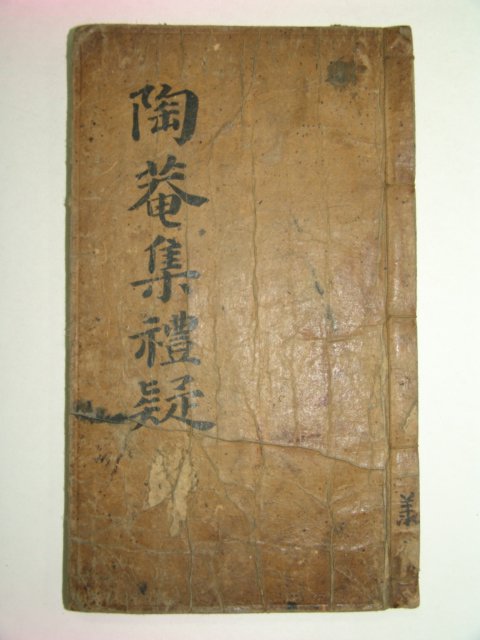 陶菴集禮疑